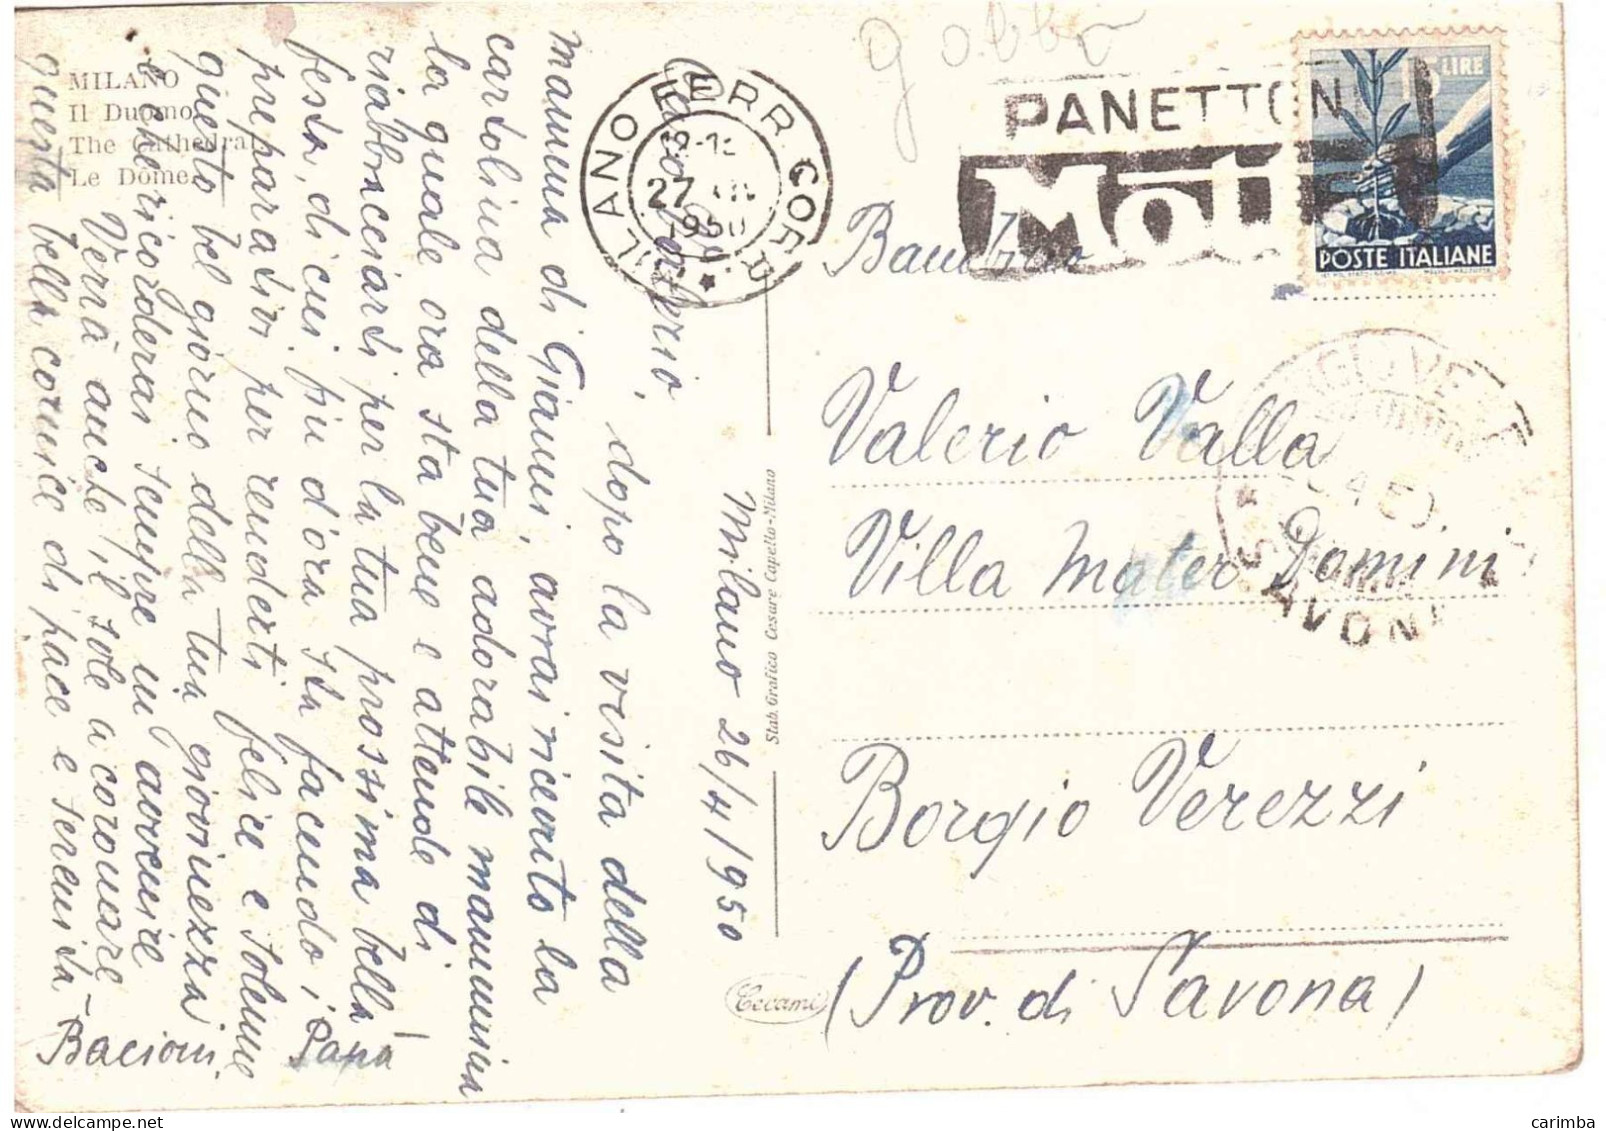 MILANO
Il Duomo
The Cathedral
Le Dôme
gobbo
MILANO FERR. CORR.
27
1950
PANETTON
Motta
LIRE
POSTE ITALIANE
Milano 26/4/1950
Valerio,
dopo la visita della
mamma di Gianni, avrai ricevuto la
cartolina della tua adorabile mammina
la quale ora sta bene e attende di
riabbracciarti per la tua prossima bella
festa, di cui fin d'ora sta facendo i
preparativi per renderti felice e solenne
questo bel giorno della tua giovinezza
e che ricorderai sempre in avvenire
Verrà anche il sole a coronare
questa bella cornice di pace e serenità
Bacioni, Papà
Stab. Grafico Cesare Capello-Milano
Cecami
Bambino
Valerio Valla
Villa Mater Domini
Borgio Verezzi
(Prov. di Savona)
SAVONA
carimba
delcampe.net